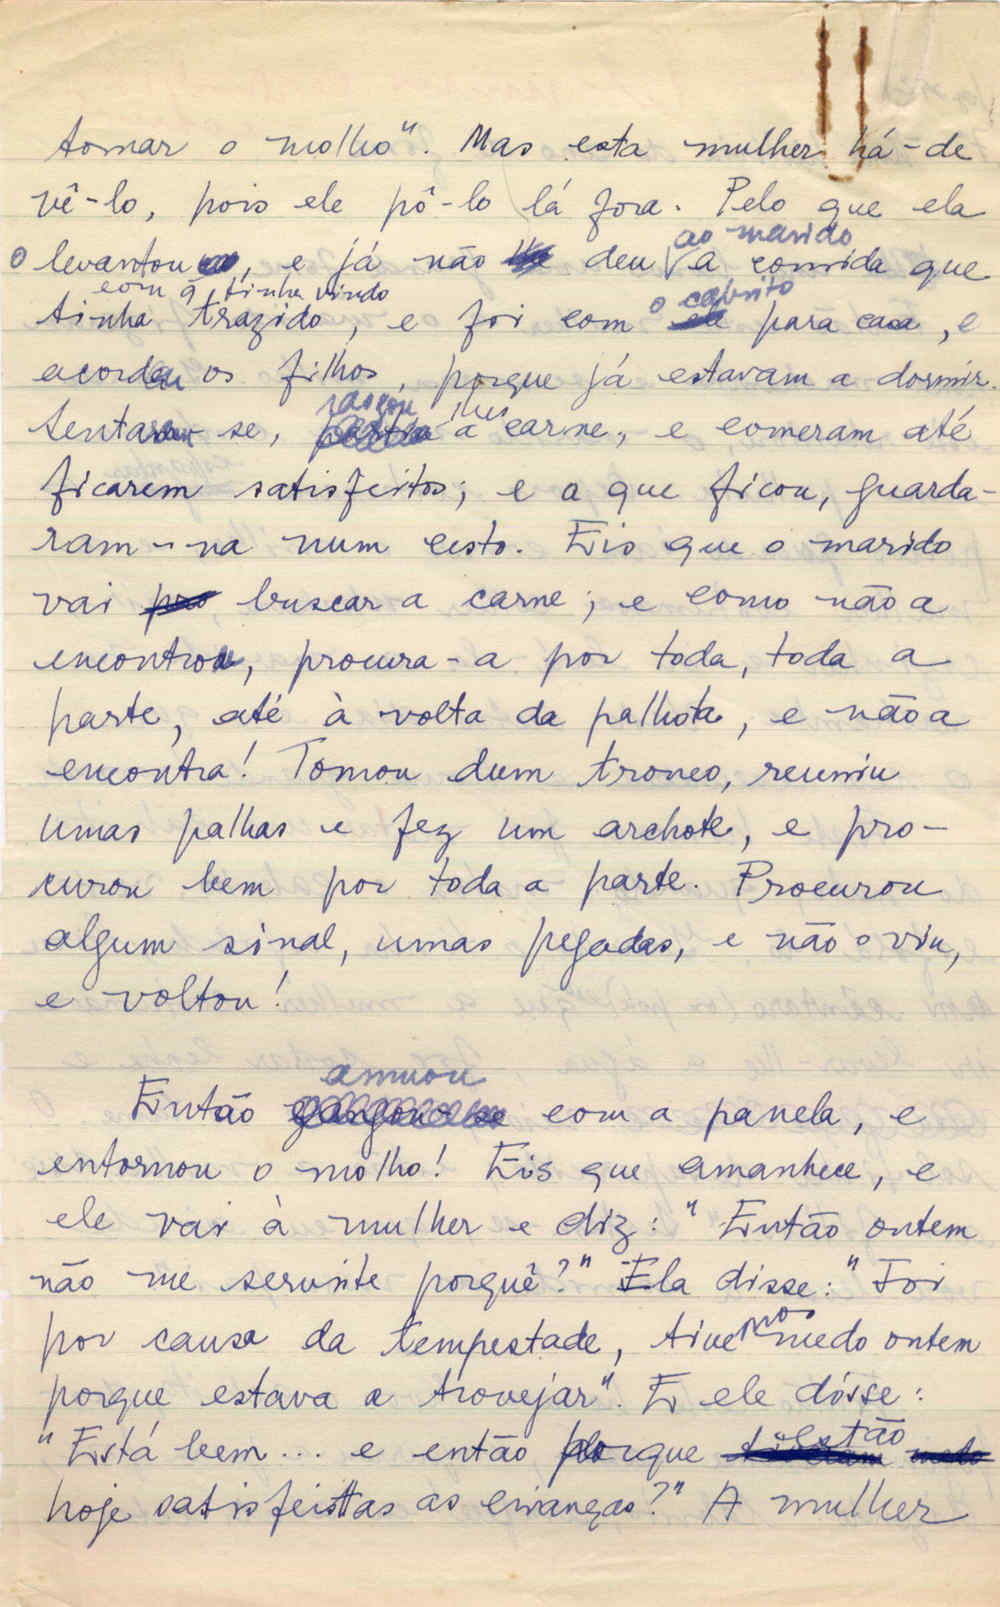 tomar o molho". Mas esta mulher há-de
vê-lo, pois ele pô-lo lá fora. Pelo que ela
ao marido
o levantou, e já não deu a comida que
com q. tinha vindo o cabrito
tinha trazido, e foi com para casa, e
acordou os filhos, porque já estavam a dormir.
rasgou lhes
Sentaram-se, a carne, e comeram até
ficarem satisfeitos; e a que ficou, guarda-
ram-na num cesto. Eis que o marido
vai buscar a carne; e como não a
encontrou, procura-a por toda, toda a
parte, até à volta da palhota, e não a
encontra! Tomou dum tronco, reuniu
umas palhas e fez um archote, e pro-
curou bem por toda a parte. Procurou
algum sinal, umas pegadas, e não o viu,
e voltou!
amuou
Então com a panela, e
entornou o molho! Eis que amanhece, e
ele vai à mulher e diz: "Então ontem
não me serviste porquê?" Ela disse: "Foi
mos
por causa da tempestade, tive medo ontem
porque estava a trovejar". E ele disse:
estão
"Está bem... e então porque
hoje satisfeitas as crianças?" A mulher